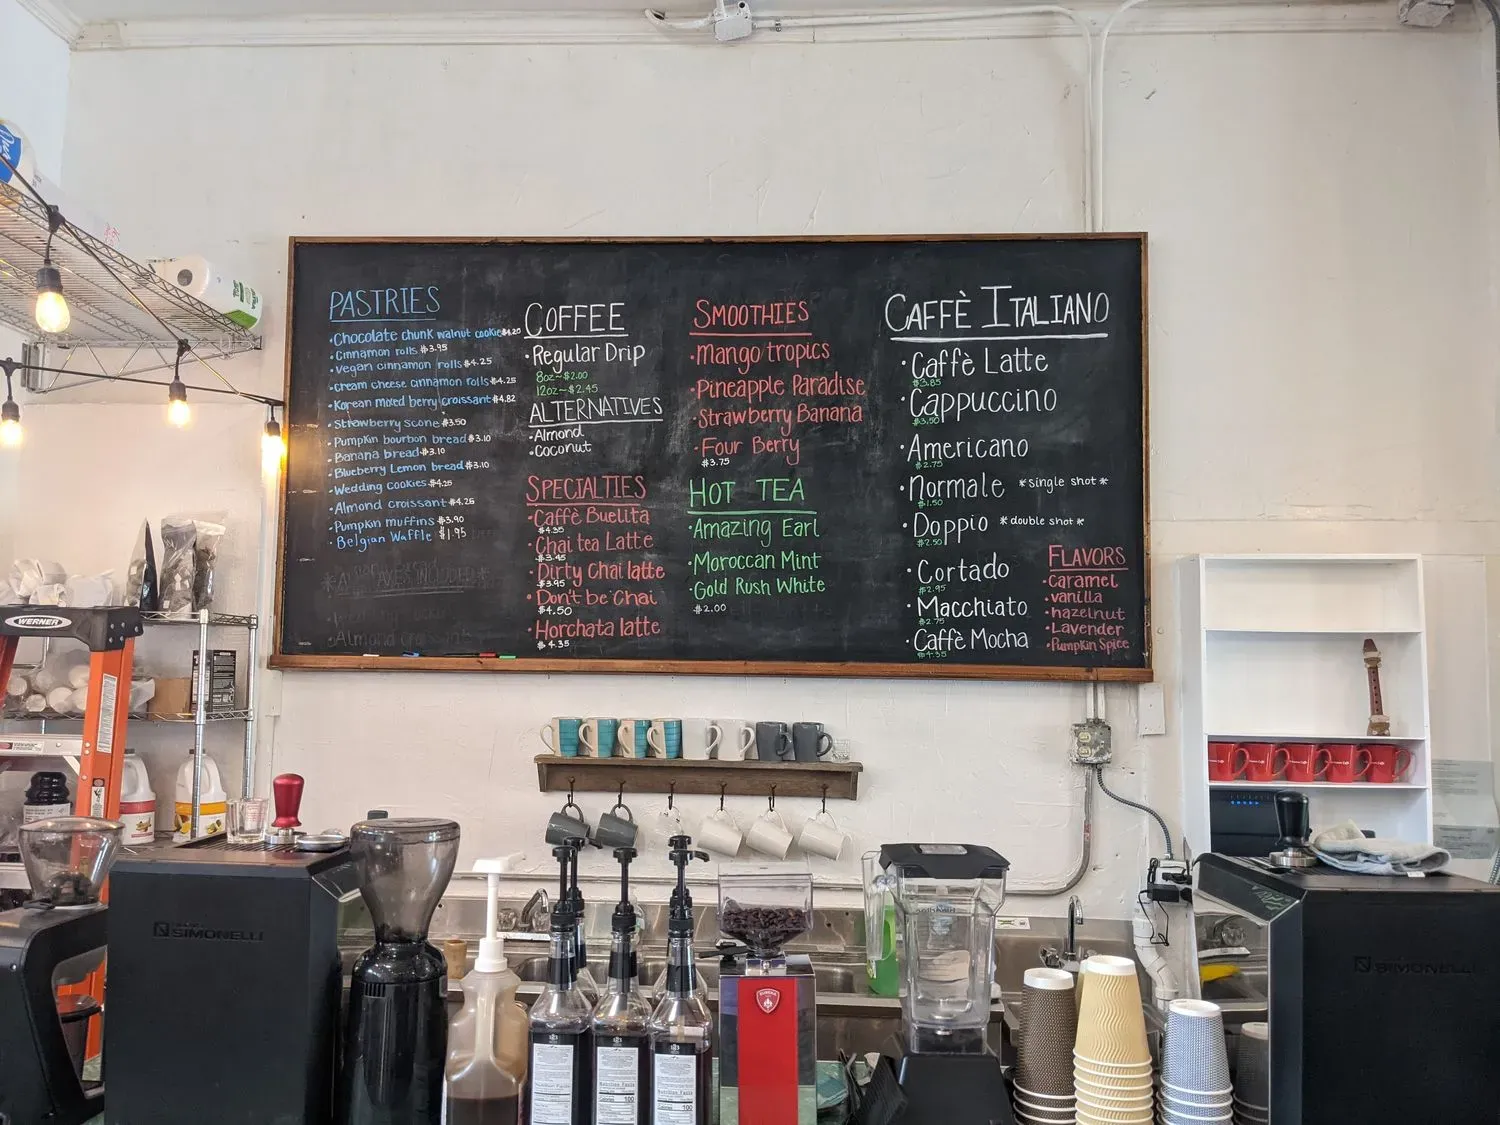 PASTRIES
·Chocolate chunk walnut cookie $4.20
·Cinnamon rolls $3.95
·Vegan cinnamon rolls $4.25
·cream cheese cinnamon rolls $4.25
·Korean mixed berry croissant $4.82
·Strawberry scone $3.50
·Pumpkin bourbon bread $3.10
·Banana bread $3.10
·Blueberry Lemon bread $3.10
·Wedding cookies $4.25
·Almond croissant $4.25
·Pumpkin muffins $3.90
·Belgian Waffle $1.95
COFFEE
·Regular Drip
8oz~$2.00
12oz~$2.45
ALTERNATIVES
·Almond
·Coconut
SPECIALTIES
·Caffè Buelita
$4.35
·Chai tea Latte
$3.45
·Dirty Chai latte
$3.95
·Don't be Chai
$4.50
·Horchata latte
$4.35
SMOOTHIES
·Mango tropics
·Pineapple Paradise
·Strawberry Banana
·Four Berry
$3.75
HOT TEA
·Amazing Earl
·Moroccan Mint
·Gold Rush White
$2.00
CAFFÈ ITALIANO
·Caffè Latte
$3.85
·Cappuccino
$3.50
·Americano
$2.75
·Normale *single shot*
$1.50
·Doppio *double shot*
$2.50
·Cortado
$2.95
·Macchiato
$2.75
·Caffè Mocha
$4.35
FLAVORS
·Caramel
·Vanilla
·hazelnut
·Lavender
·Pumpkin Spice
WERNER
SIMONELLI
SIMONELLI
EUREKA
Nutrition Facts
Nutrition Facts
Nutrition Facts
100
100